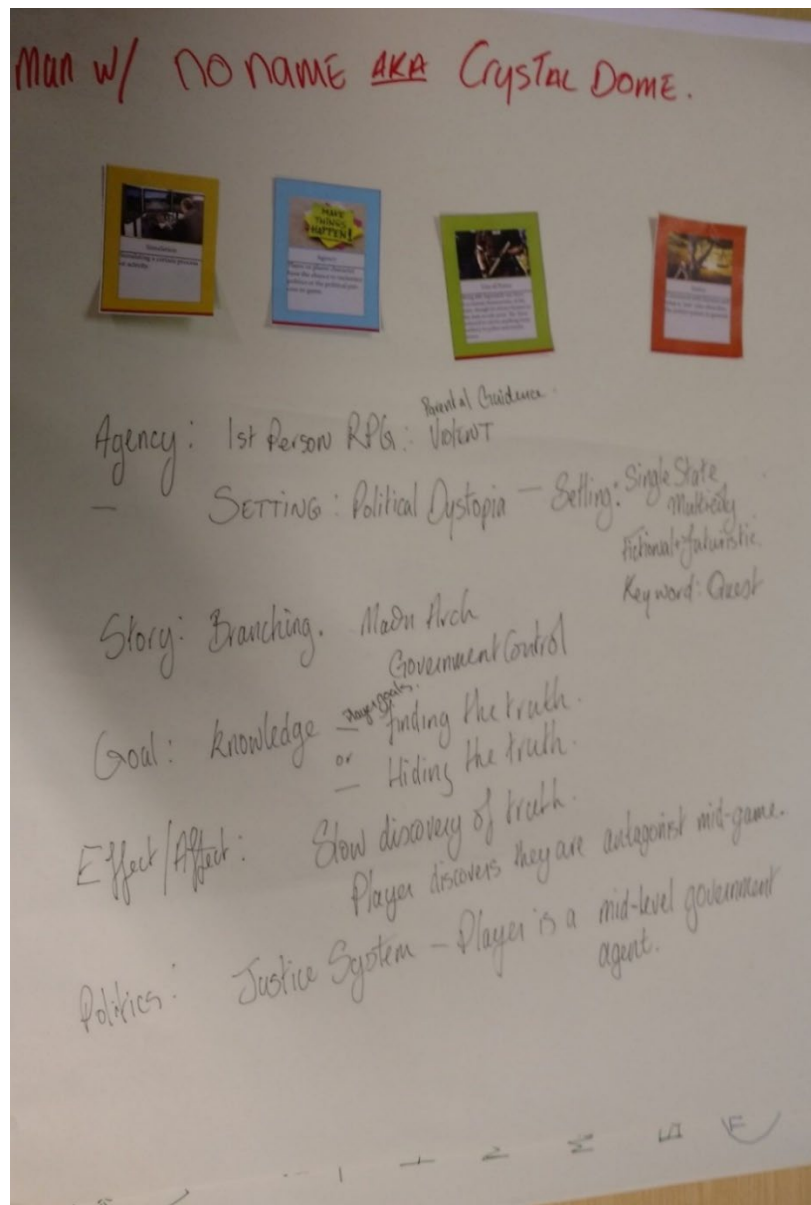 Man w/ no name AKA Crystal Dome.
MAKE THINGS HAPPEN!
Simulation
Agency
Agency: 1st Person RPG: Violent
Parental Guidence.
— Setting: Political Dystopia — Setting: Single State
Multicity
Fictional + futuristic.
Keyword: Quest
Story: Branching. Main Arch
Government Control
Goal: knowledge — Player goals. finding the truth.
or
— Hiding the truth.
Effect/Affect: Slow discovery of truth.
Player discovers they are antagonist mid-game.
Politics: Justice System — Player is a mid-level government
agent.